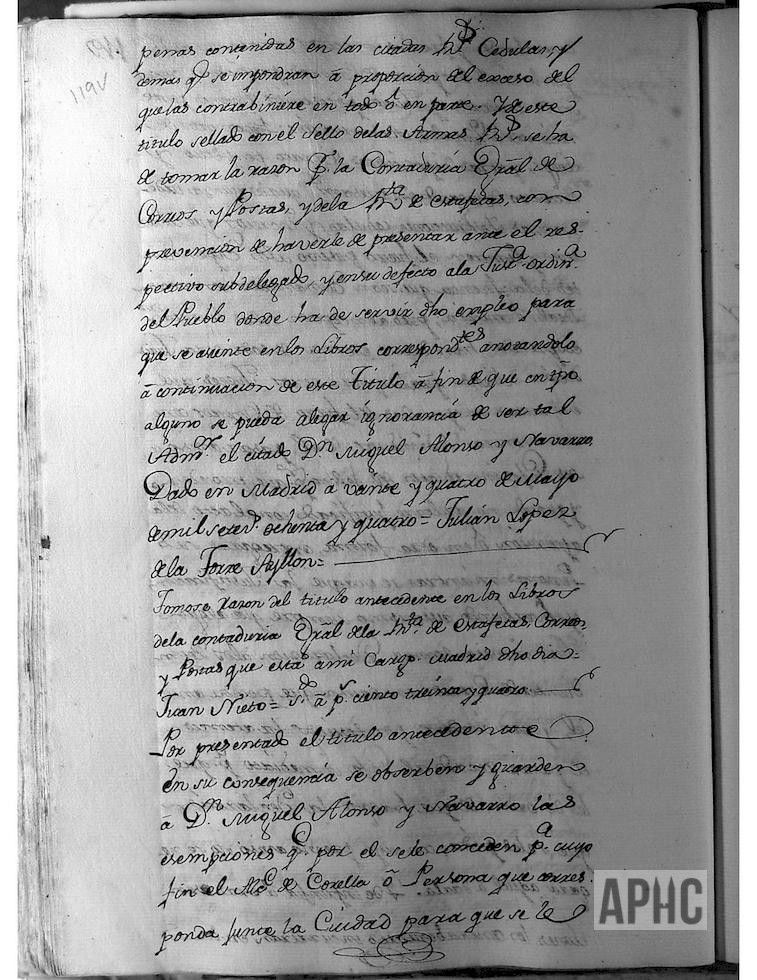 119v
penas contenidas en las citadas Rs. Cedulas, y
demas q.e se impondran â proporcion del exceso del
que las contrabiniere en todo ô en parte. Y de este
titulo sellado con el Sello de las Armas Rs. se ha
de tomar la razon P. la Contaduria Gràl de
Correos y Postas, y dela R.ta de estafetas, con
prevencion de haverle de presentar ante el res-
pectivo subdelegado, y en su defecto ala Just.a ordin.a
del Pueblo donde ha de servir dho empleo para
que se asiente en los Libros correspond.tes anotandolo
â continuacion de este Titulo â fin de que en tpõ
alguno se pueda alegar ignorancia de ser tal
Adm.or el citado D.n Miguel Alonso y Navarro,
Dado en Madrid â veinte y quatro de Mayo
de mil setez.s ochenta y quatro = Julian Lopez
de la Torre Ayllon =
Tomose razon del titulo antecedente en los Libros
dela contaduria Gràl dela R.ta de Estafetas, Correos,
y Postas que està a mi Cargo. Madrid dho dia =
Juan Nieto = s.do â p.s ciento treinta y quatro
Por presentado el titulo antecedente
en su consequencia se observen y guarden
â D.n Miguel Alonso y Navarro las
esempciones q.e por el se le conceden p.a cuyo
fin el Alc.e de Corella ô Persona que corres-
ponda junte la Ciudad para que se le
APHC